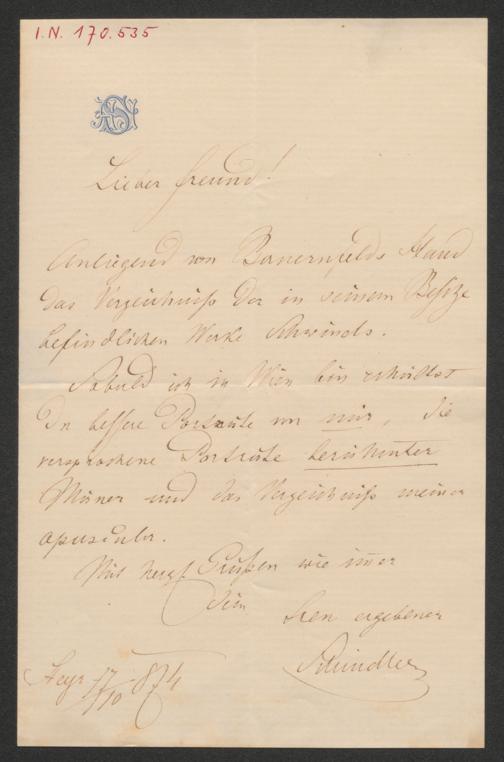 I.N. 170.535
Lieber Freund!
Anliegend von Bauernfelds Hand
das Verzeichniß der in seinem Besitze
befindlichen Werke Schwinds.
Sobald ich in Wien bin erhältst
Du bessere Portraite von mir, die
versprochene Portraite berühmter
Männer und das Verzeichniß meiner
opuscula.
Mit herzl Grüßen wie immer
Dein
treu ergebener
Schindler
17/10 874